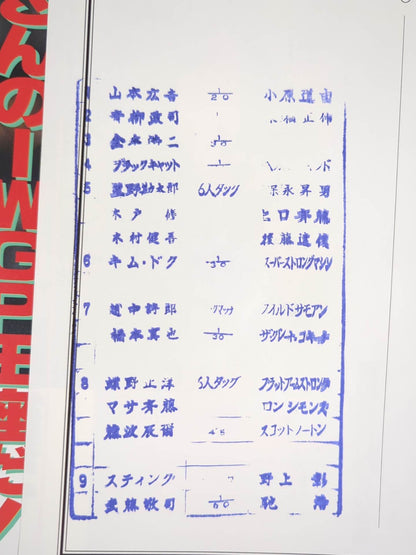 さんのIWGP王座だ
1 山本広吉 1/20 小原道由
2 青柳政司 正伸
3 金本浩二 1/30
4 ブラックキャット 1 ド
5 星野勘太郎 6人タッグ 保永昇男
木戸 修 ヒロ斉藤
木村健吾 後藤達俊
6 キム・ドク 1/30 スーパーストロングマシン
7 越中詩郎 タッグマッチ ワイルドサモアン
橋本真也 1/30 ザグレートコキーナ
8 蝶野正洋 6人タッグ ブラッドアームストロング
マサ斉藤 ロンシモンズ
藤波辰爾 45 スコットノートン
9 スティング 野上 彰
武藤敬司 1/60 馳 浩